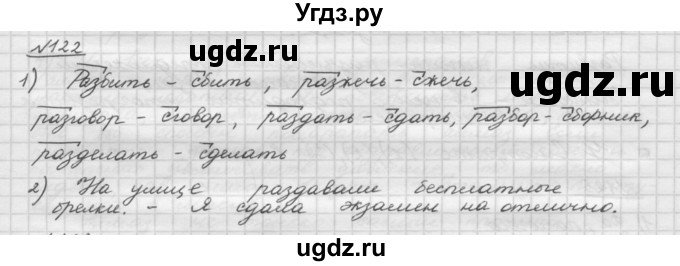 Угдз.ру
№122
ugdz.ru
ugdz.ru
1) Разбить – сбить, разжечь – сжечь,
разговор – сговор, раздать – сдать, разбор – сборник,
разделать – сделать
2) На улице раздавали бесплатные
брелки. – Я сдала экзамен на отлично.
ugdz.ru
ugdz.ru